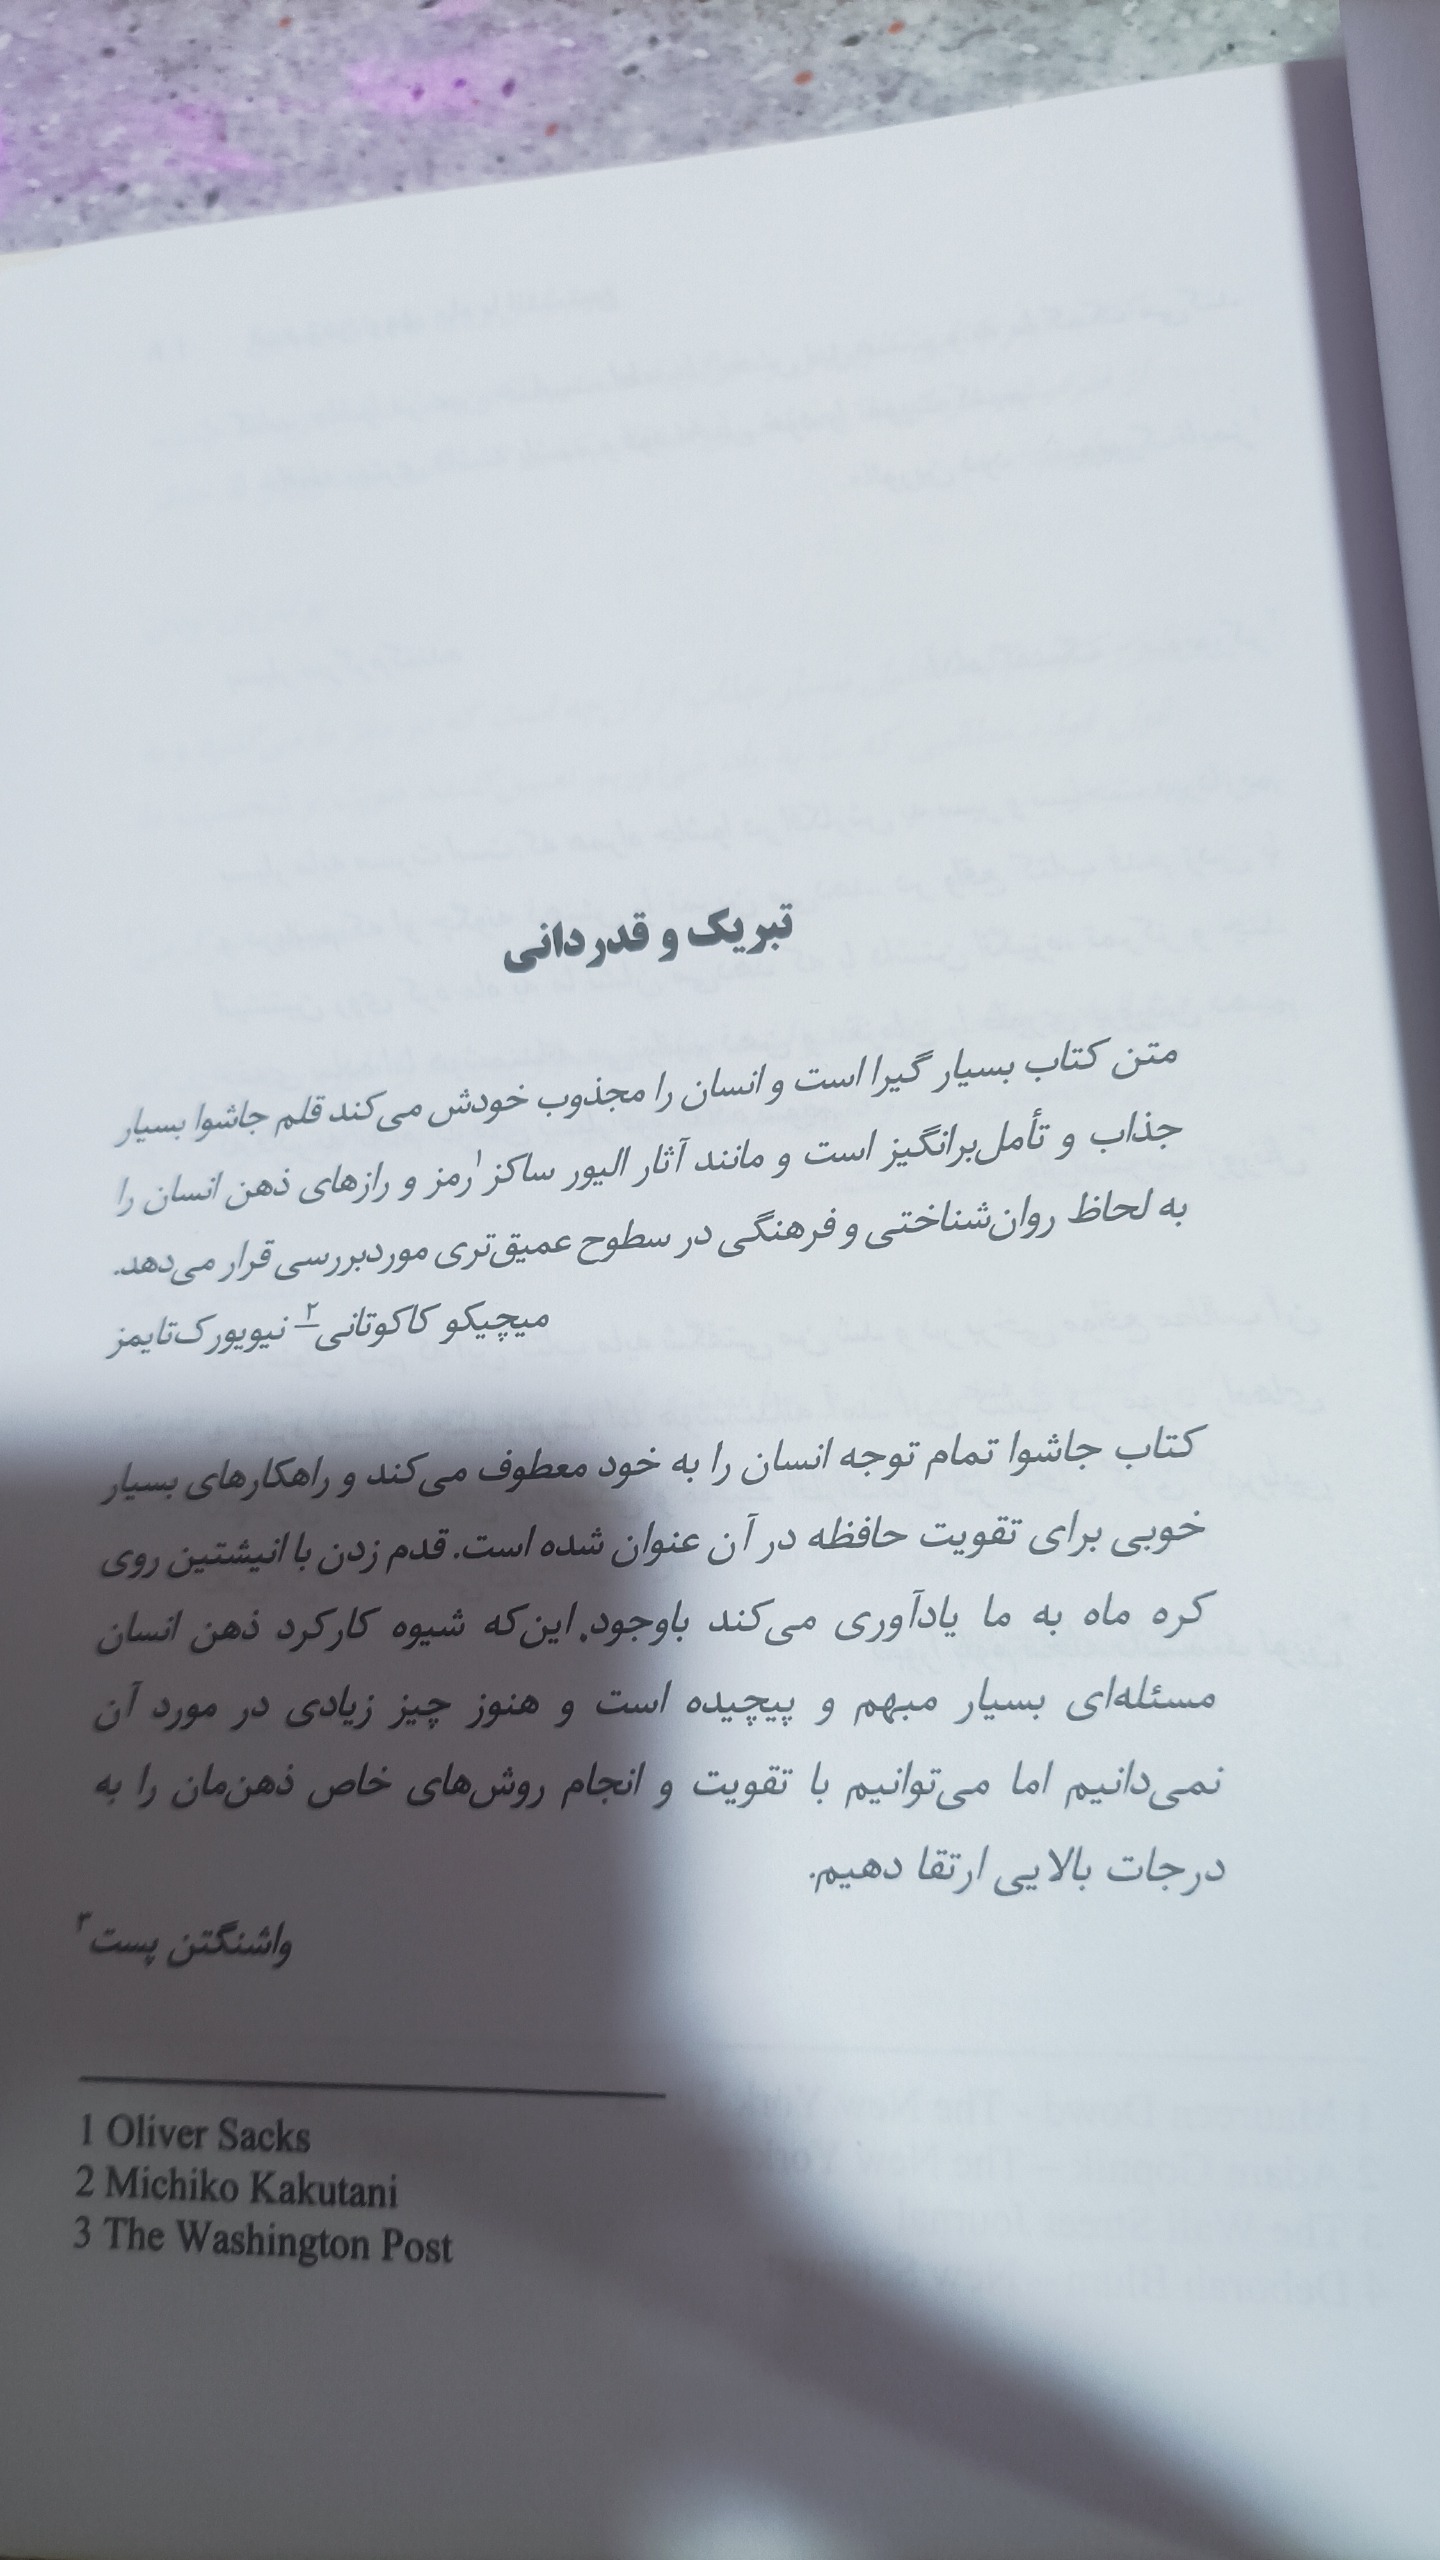 تبریک و قدردانی
متن کتاب بسیار گیرا است و انسان را مجذوب خودش می‌کند قلم جاشوا بسیار
جذاب و تأمل‌برانگیز است و مانند آثار الیور ساکز۱ رمز و رازهای ذهن انسان را
به لحاظ روان‌شناختی و فرهنگی در سطوح عمیق‌تری موردبررسی قرار می‌دهد.
میچیکو کاکوتانی۲– نیویورک‌تایمز
کتاب جاشوا تمام توجه انسان را به خود معطوف می‌کند و راهکارهای بسیار
خوبی برای تقویت حافظه در آن عنوان شده است. قدم زدن با انیشتین روی
کره ماه به ما یادآوری می‌کند باوجود این‌که شیوه کارکرد ذهن انسان
مسئله‌ای بسیار مبهم و پیچیده است و هنوز چیز زیادی در مورد آن
نمی‌دانیم اما می‌توانیم با تقویت و انجام روش‌های خاص ذهن‌مان را به
درجات بالایی ارتقا دهیم.
واشنگتن پست۳
1 Oliver Sacks
2 Michiko Kakutani
3 The Washington Post